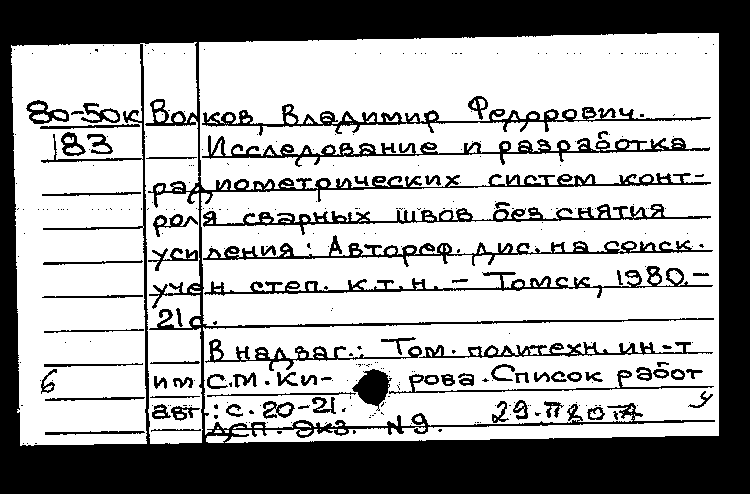 80-50к Волков, Владимир Федорович.
183 Исследование и разработка
радиометрических систем конт-
роля сварных швов без снятия
усиления: Автореф. дис. на соиск.
учен. степ. к.т.н. – Томск, 1980.–
21с.
В надзаг.: Том. политехн. ин-т
6 им. С.М. Ки- рова. Список работ
авт.: с. 20-21.
Деп. экз. N9.